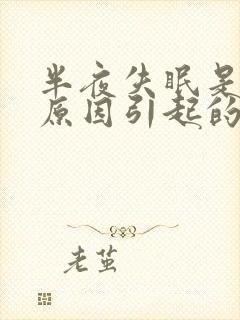 半夜失眠是
原因引起的
老茧